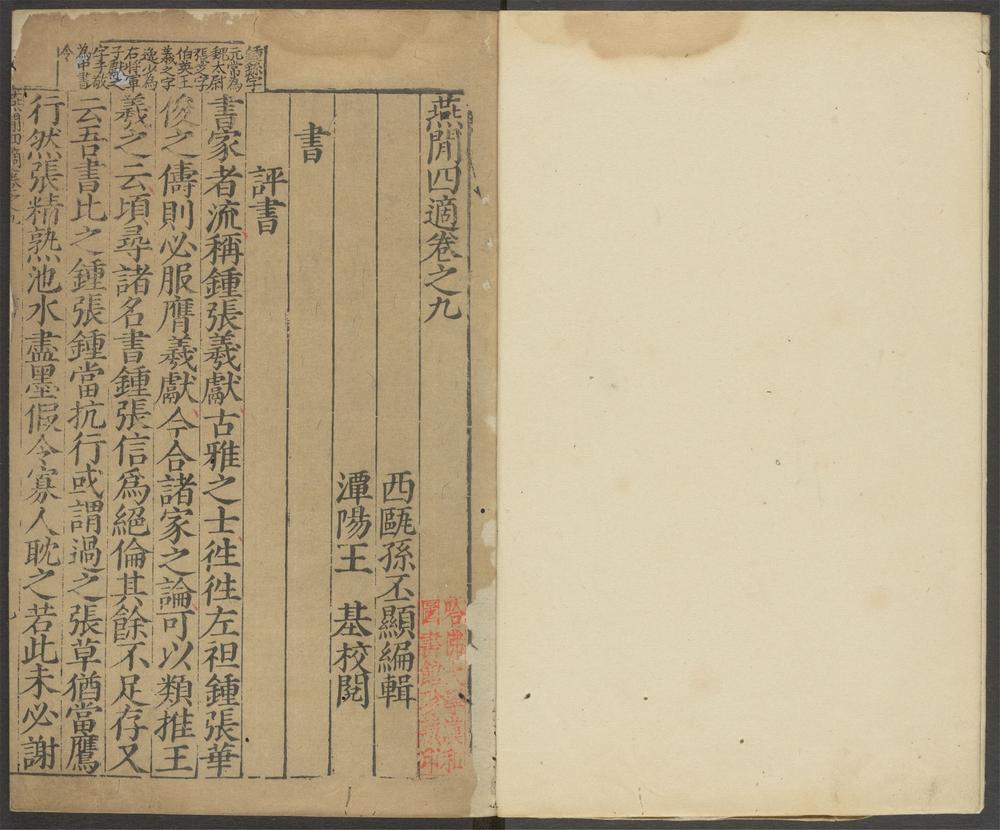 燕閒四適卷之九
西甌孫丕顯編輯
潭陽王　基校閱
書
評書
書家者流稱鍾張羲獻古雅之士徃徃左袒鍾張華
俊之儔則必服膺羲獻今合諸家之論可以類推王
羲之云頃尋諸名書鍾張信爲絕倫其餘不足存又
云吾書比之鍾張鍾當抗行或謂過之張草猶當鴈
行然張精熟池水盡墨假令寡人耽之若此未必謝
鍾繇字
元常為
魏太尉
張芝字
伯英王
羲之字
逸少為
右將軍
子獻之
字子敬
為中書
令
哈佛大學漢和
圖書館珍藏印